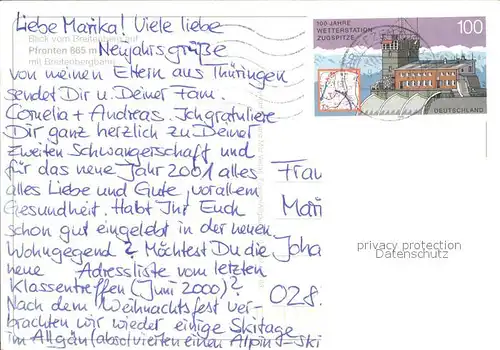 Liebe Marika! Viele liebe
Neujahrsgrüße
von meinen Eltern aus Thüringen
sendet Dir u. Deiner Fam.
Cornelia + Andreas. Ich gratuliere
Dir ganz herzlich zu Deiner
zweiten Schwangerschaft und
für das neue Jahr 2001 alles
alles Liebe und Gute, vor allem
Gesundheit. Habt Ihr Euch
schon gut eingelebt in der neuen
Wohngegend? Möchtest Du die
neue Adressliste vom letzten
Klassentreffen (Juni 2000)?
Nach dem Weihnachtsfest ver-
brachten wir wieder einige Skitage
im Allgäu (absolvierten einen Alpin-Ski
Blick vom Breitenberg auf
Pfronten 865 m
mit Breitenbergbahn
100 JAHRE
WETTERSTATION
ZUGSPITZE
100
DEUTSCHLAND
Frau
Mari
Joha
028
privacy protection
Datenschutz